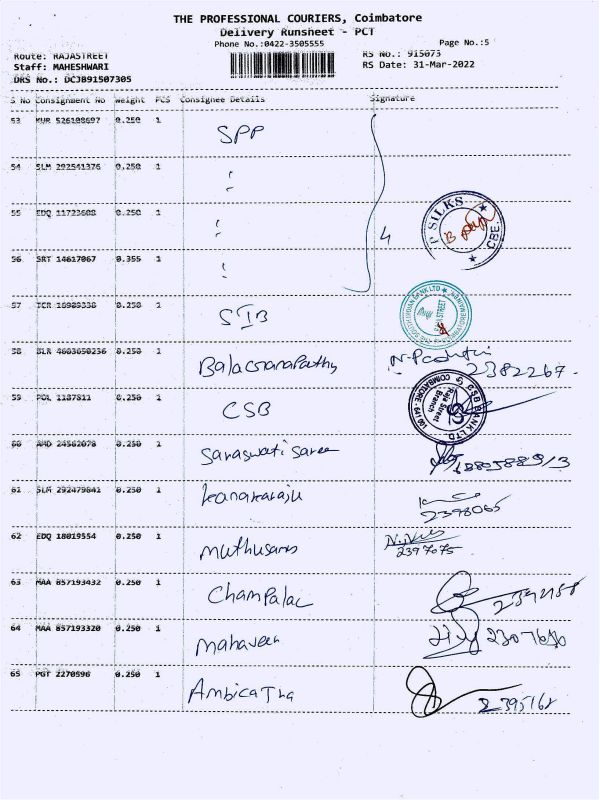 THE PROFESSIONAL COURIERS, Coimbatore
Delivery Runsheet - PCT
Phone No.:0422-3505555
Page No.:5
Route: RAJASTREET
RS No.: 915073
Staff: MAHESHWARI
RS Date: 31-Mar-2022
DRS No.: DCJ091507305
S No Consignment No Weight PCS Consignee Details Signature
53 KUR 526108697 0.250 1 SPP
54 SLM 292541376 0.250 1 "
55 EDQ 11723608 0.250 1 "
4
P SILKS CBE.
56 SRT 14617067 0.355 1 "
57 TCR 16989338 0.250 1 SIB
58 BLR 4603650236 0.250 1 2382267.
59 POL 1187811 0.250 1 CSB
CSB BANK LTD. Raja Street Branch COIMBATORE - 641 001
60 AMD 24562078 0.250 1 Saraswati Saree
61 SLM 292479841 0.250 1 Kanakaraju 2398065
62 EDQ 18019554 0.250 1 Muthusams 2397075
63 MAA 857193432 0.250 1 Champalac
64 MAA 857193320 0.250 1 Mahaveer
65 PGT 2270596 0.250 1 Ambica Tha 2395168